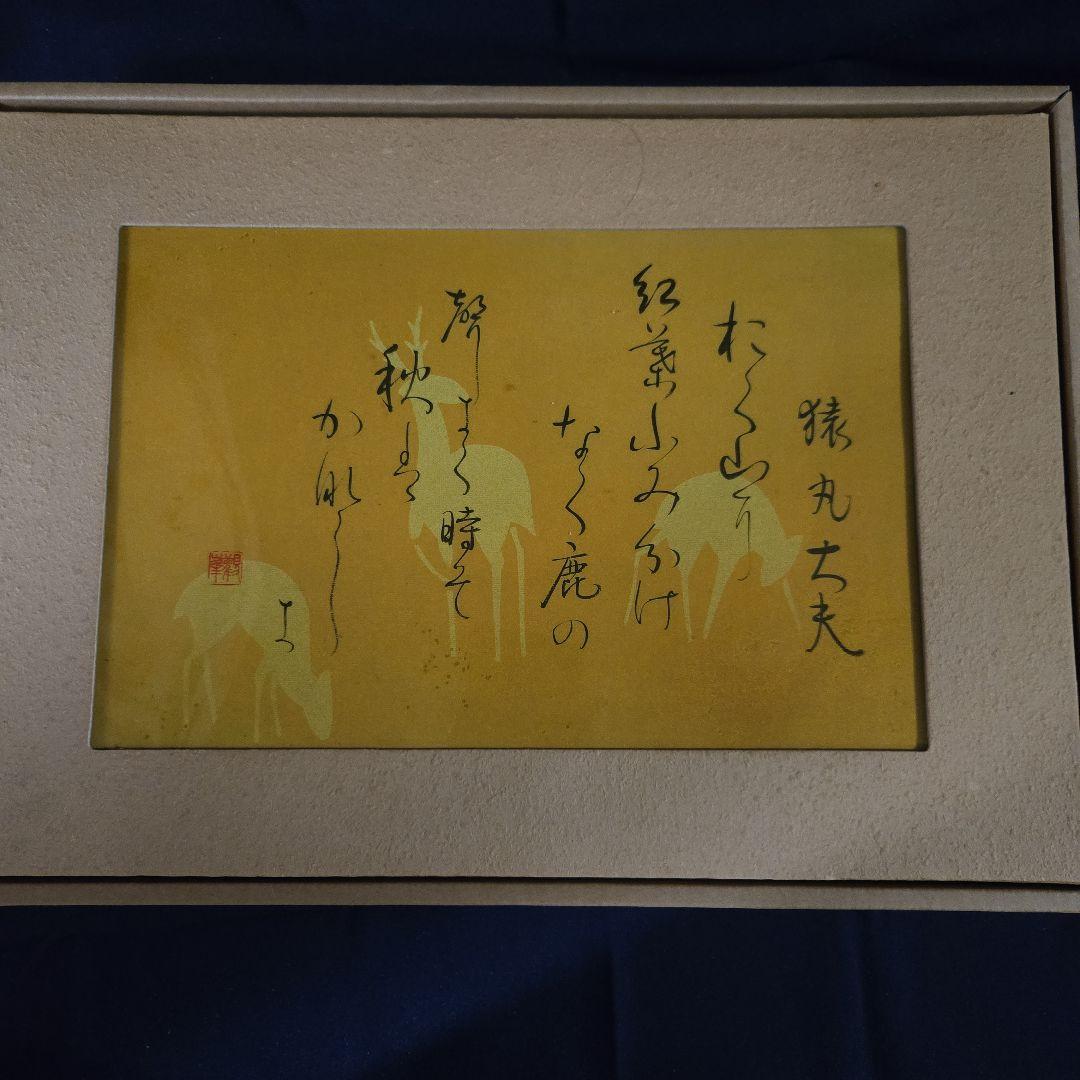 猿丸大夫
おく山に
紅葉ふみ分け
なく鹿の
聲きく時そ
秋は
か那し
き